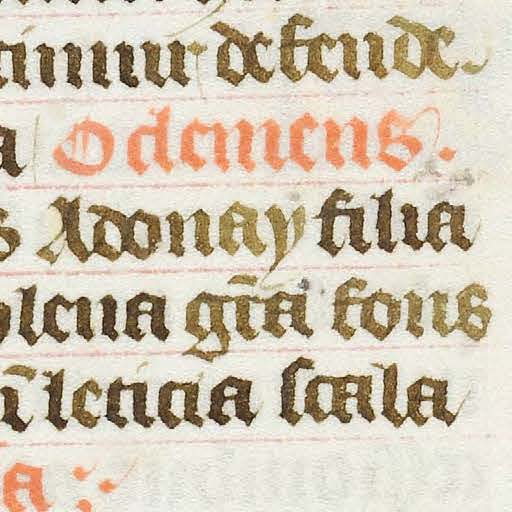 timur defende.
a O clemens.
s Adonay filia
plena gr̄a fons
leticia scala
a :·